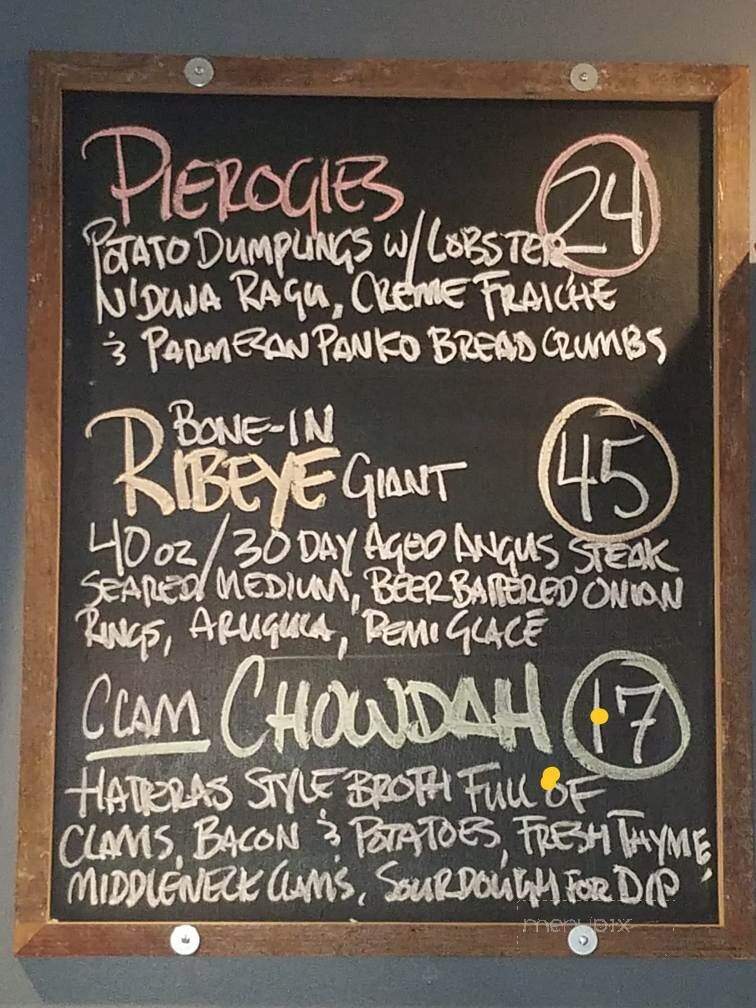 PIEROGIES 24
POTATO DUMPLINGS W/ LOBSTER
N'DUJA RAGU, CREME FRAICHE
& PARMESAN PANKO BREAD CRUMBS
BONE-IN
RIBEYE GIANT 45
40 OZ / 30 DAY AGED ANGUS STEAK
SEARED MEDIUM, BEER BATTERED ONION
RINGS, ARUGULA, DEMI GLACÉ
CLAM CHOWDAH 17
HATTERAS STYLE BROTH FULL OF
CLAMS, BACON & POTATOES, FRESH THYME,
MIDDLENECK CLAMS, SOURDOUGH FOR DIP
menupix